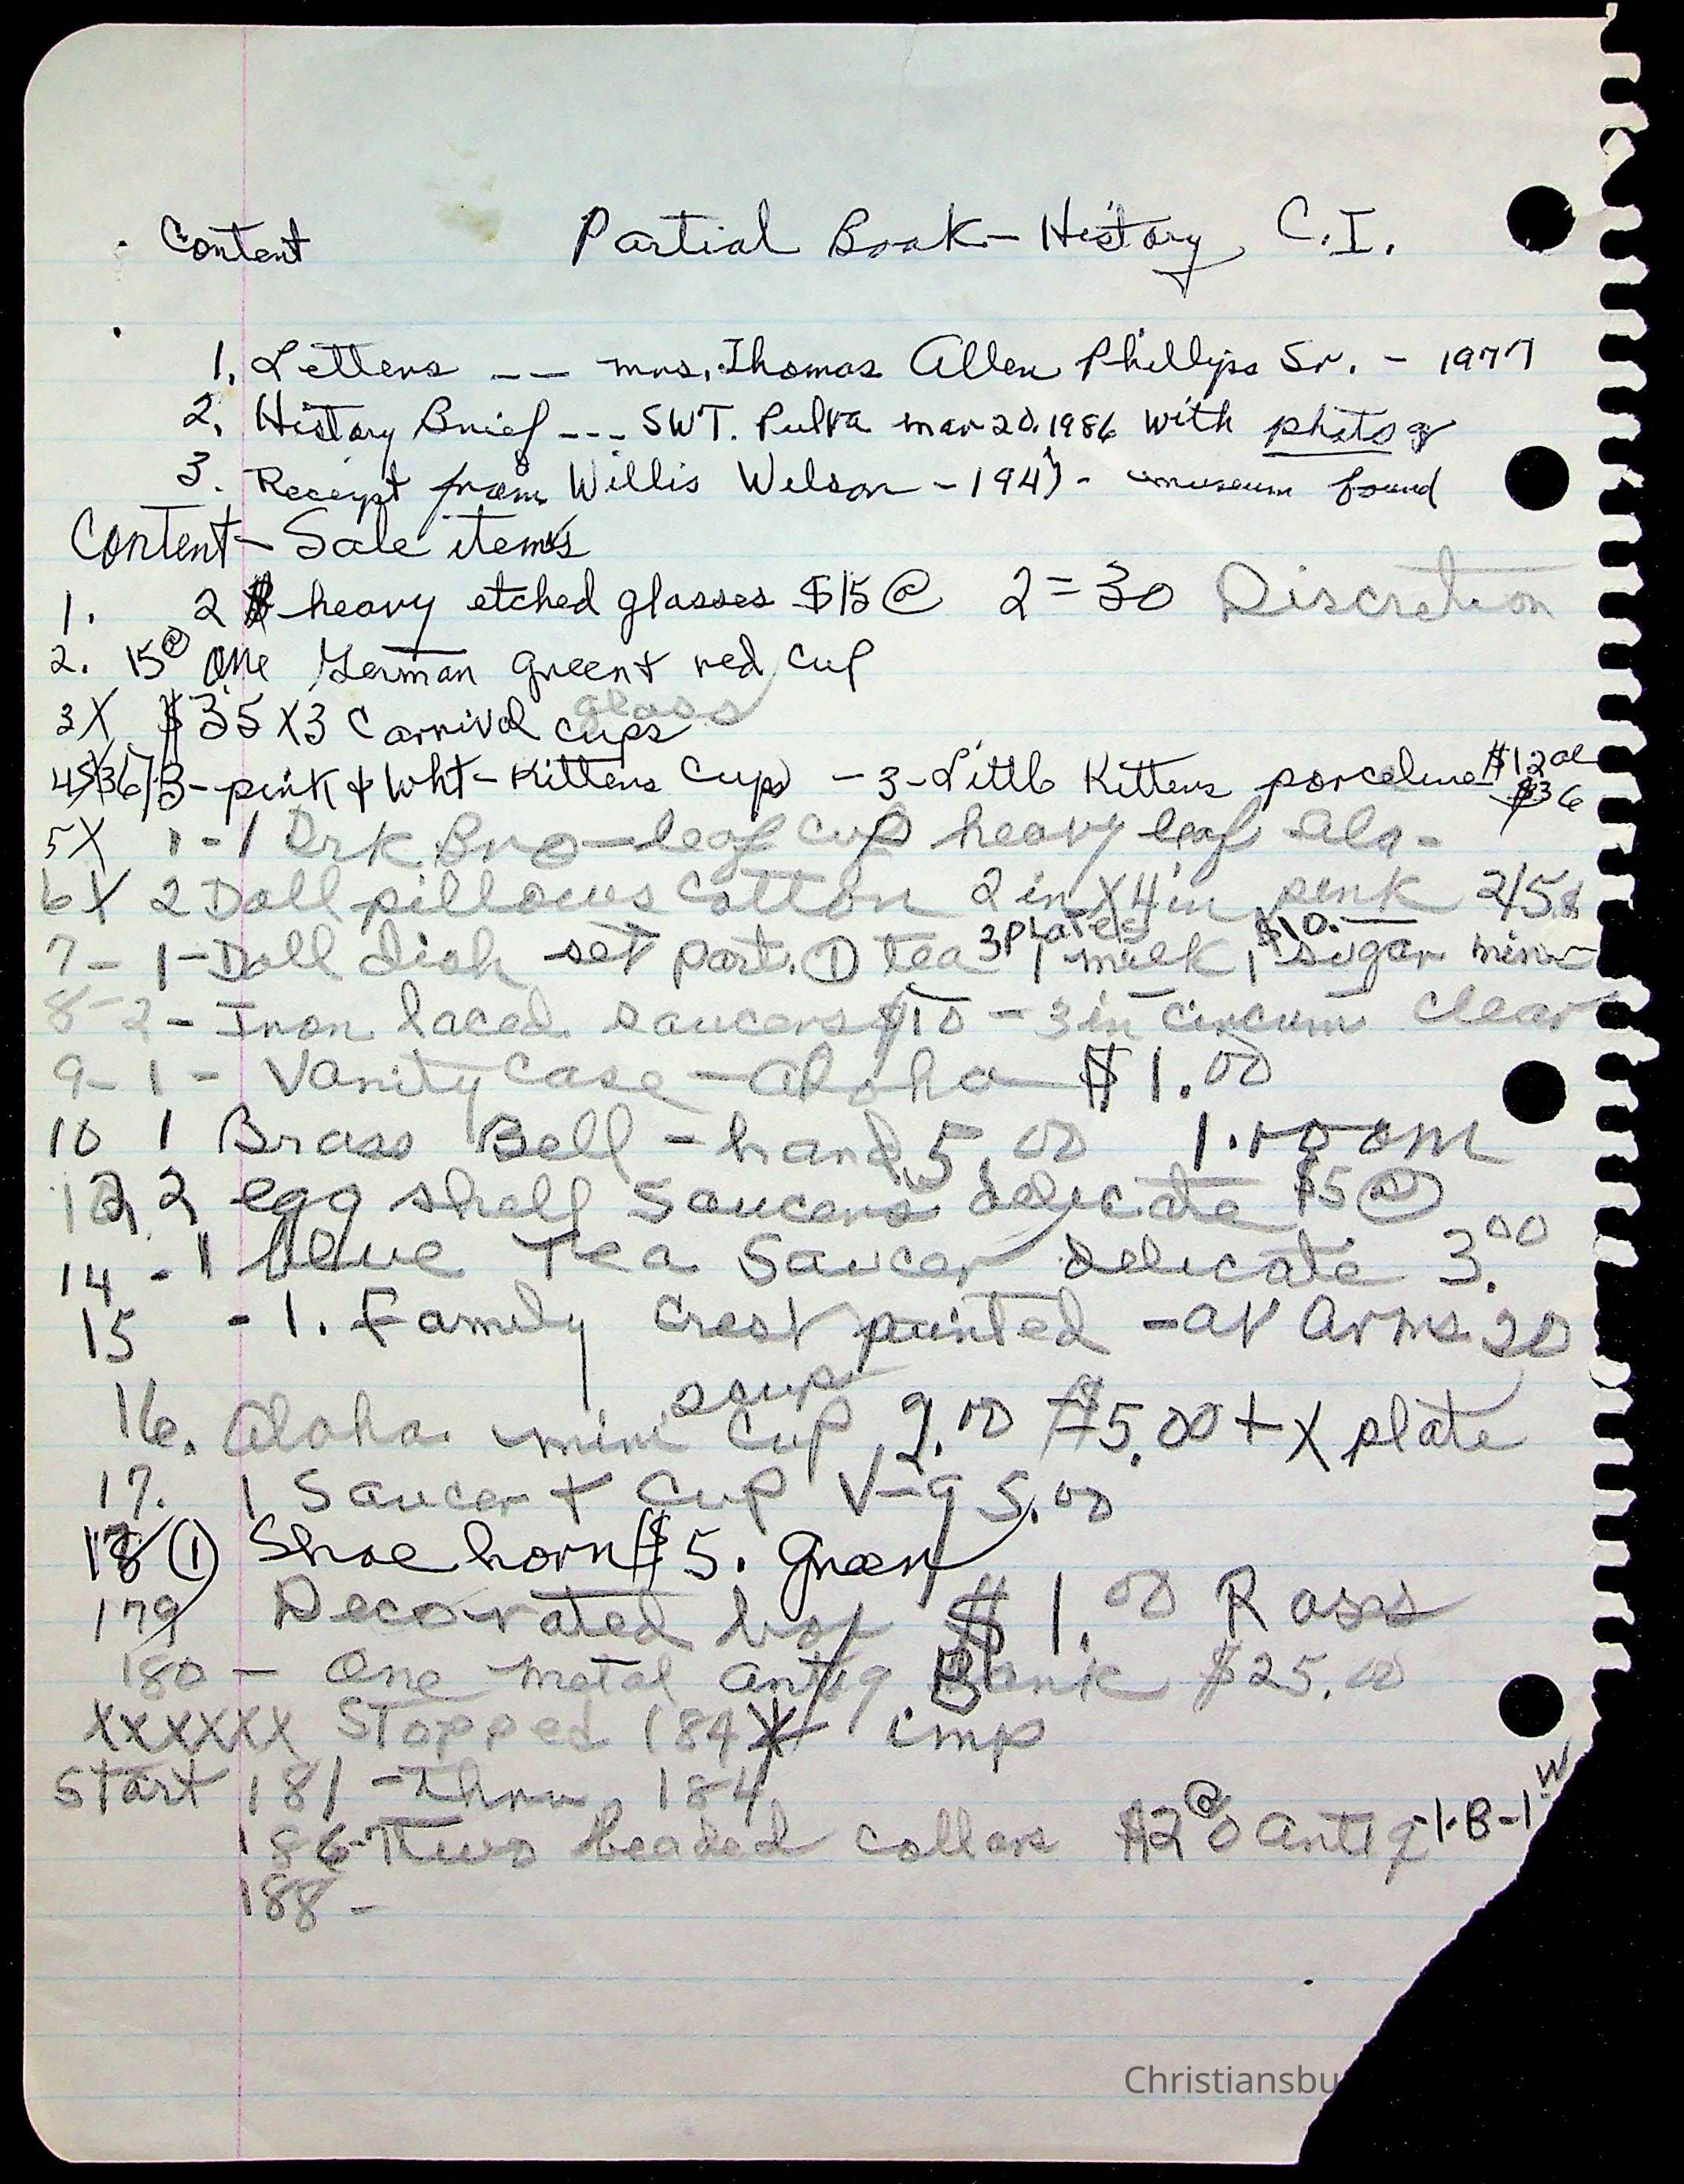 Content Partial Book - History C.I.
1. Letters -- Mrs. Thomas Allen Phillips Sr. - 1977
2. History Brief --- SWT. Pulva Mar 20. 1986 with photo
3. Receipt from Willis Welson - 194 - museum found
Content - Sale items
1. 2 heavy etched glasses $15@ 2 = 30 Discretion
2. 15@ One German green + red cup
glass
3X $35 X3 Carnival cups
3 - pink & Wht - Kittens Cups - 3 - Little Kittens porceline $12
$36
5X 1 - 1 Drk Bro - leaf cup heavy leaf
6X 2 Doll pillows cotton 2 in X 4 in pink
3 plates $10.
7 - 1 - Doll dish set part. ① tea 1 milk, 1 sugar mini
8 - 2 - Iron laced saucers $10 - 3 in circum clear
9 - 1 - Vanity Case - Aloha $1.00
10 1 Brass Bell - hand 5.00 1.room
12. 2 egg shell saucers delicate $5@
14 - 1 blue Tea Saucer delicate 3.00
15 - 1. Family Crest painted - at Arms 20
soup
16. Aloha mini cup 9.00 $5.00 + X plate
17. 1 Saucer + Cup V-9 5.00
18 (1) Shoe horn $5. green
179 Decorated box $1.00 Ross
180 - One metal antiq Bank $25.00
XXXXXX Stopped 184 * imp
Start 181 - thru 184
186 - Two beaded collars $20@ antiq - 1-B-1W
188 -
Christiansbu